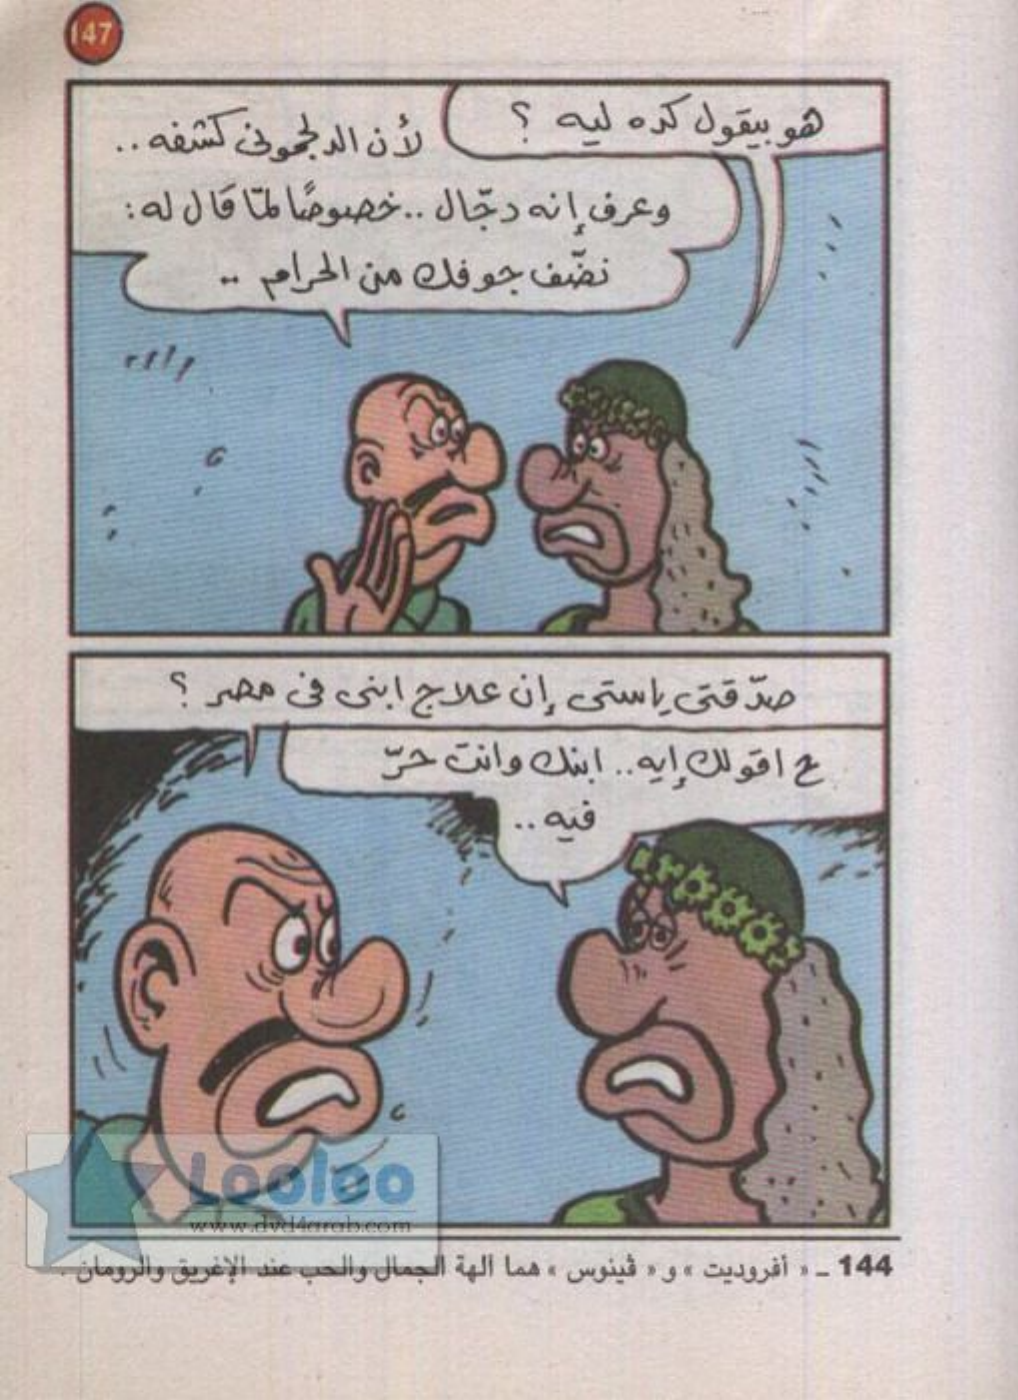 147
هو بيقول كده ليه ؟
لأن الدلجموني كشفه ..
وعرف إنه دجّال .. خصوصًا لمّا قال له :
نضّف جوفك من الحرام ..
صدّقتى ياستى إن علاج ابنى فى مصر ؟
ح اقولك إيه .. ابنك وانت حرّ
فيه ..
Looloo
www.dvd4arab.com
144 ـ « أفروديت » و « ڤينوس » هما آلهة الجمال والحب عند الإغريق والرومان .